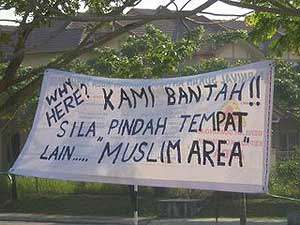 WHY HERE? KAMI BANTAH!!
SILA PINDAH TEMPAT
LAIN..... "MUSLIM AREA"